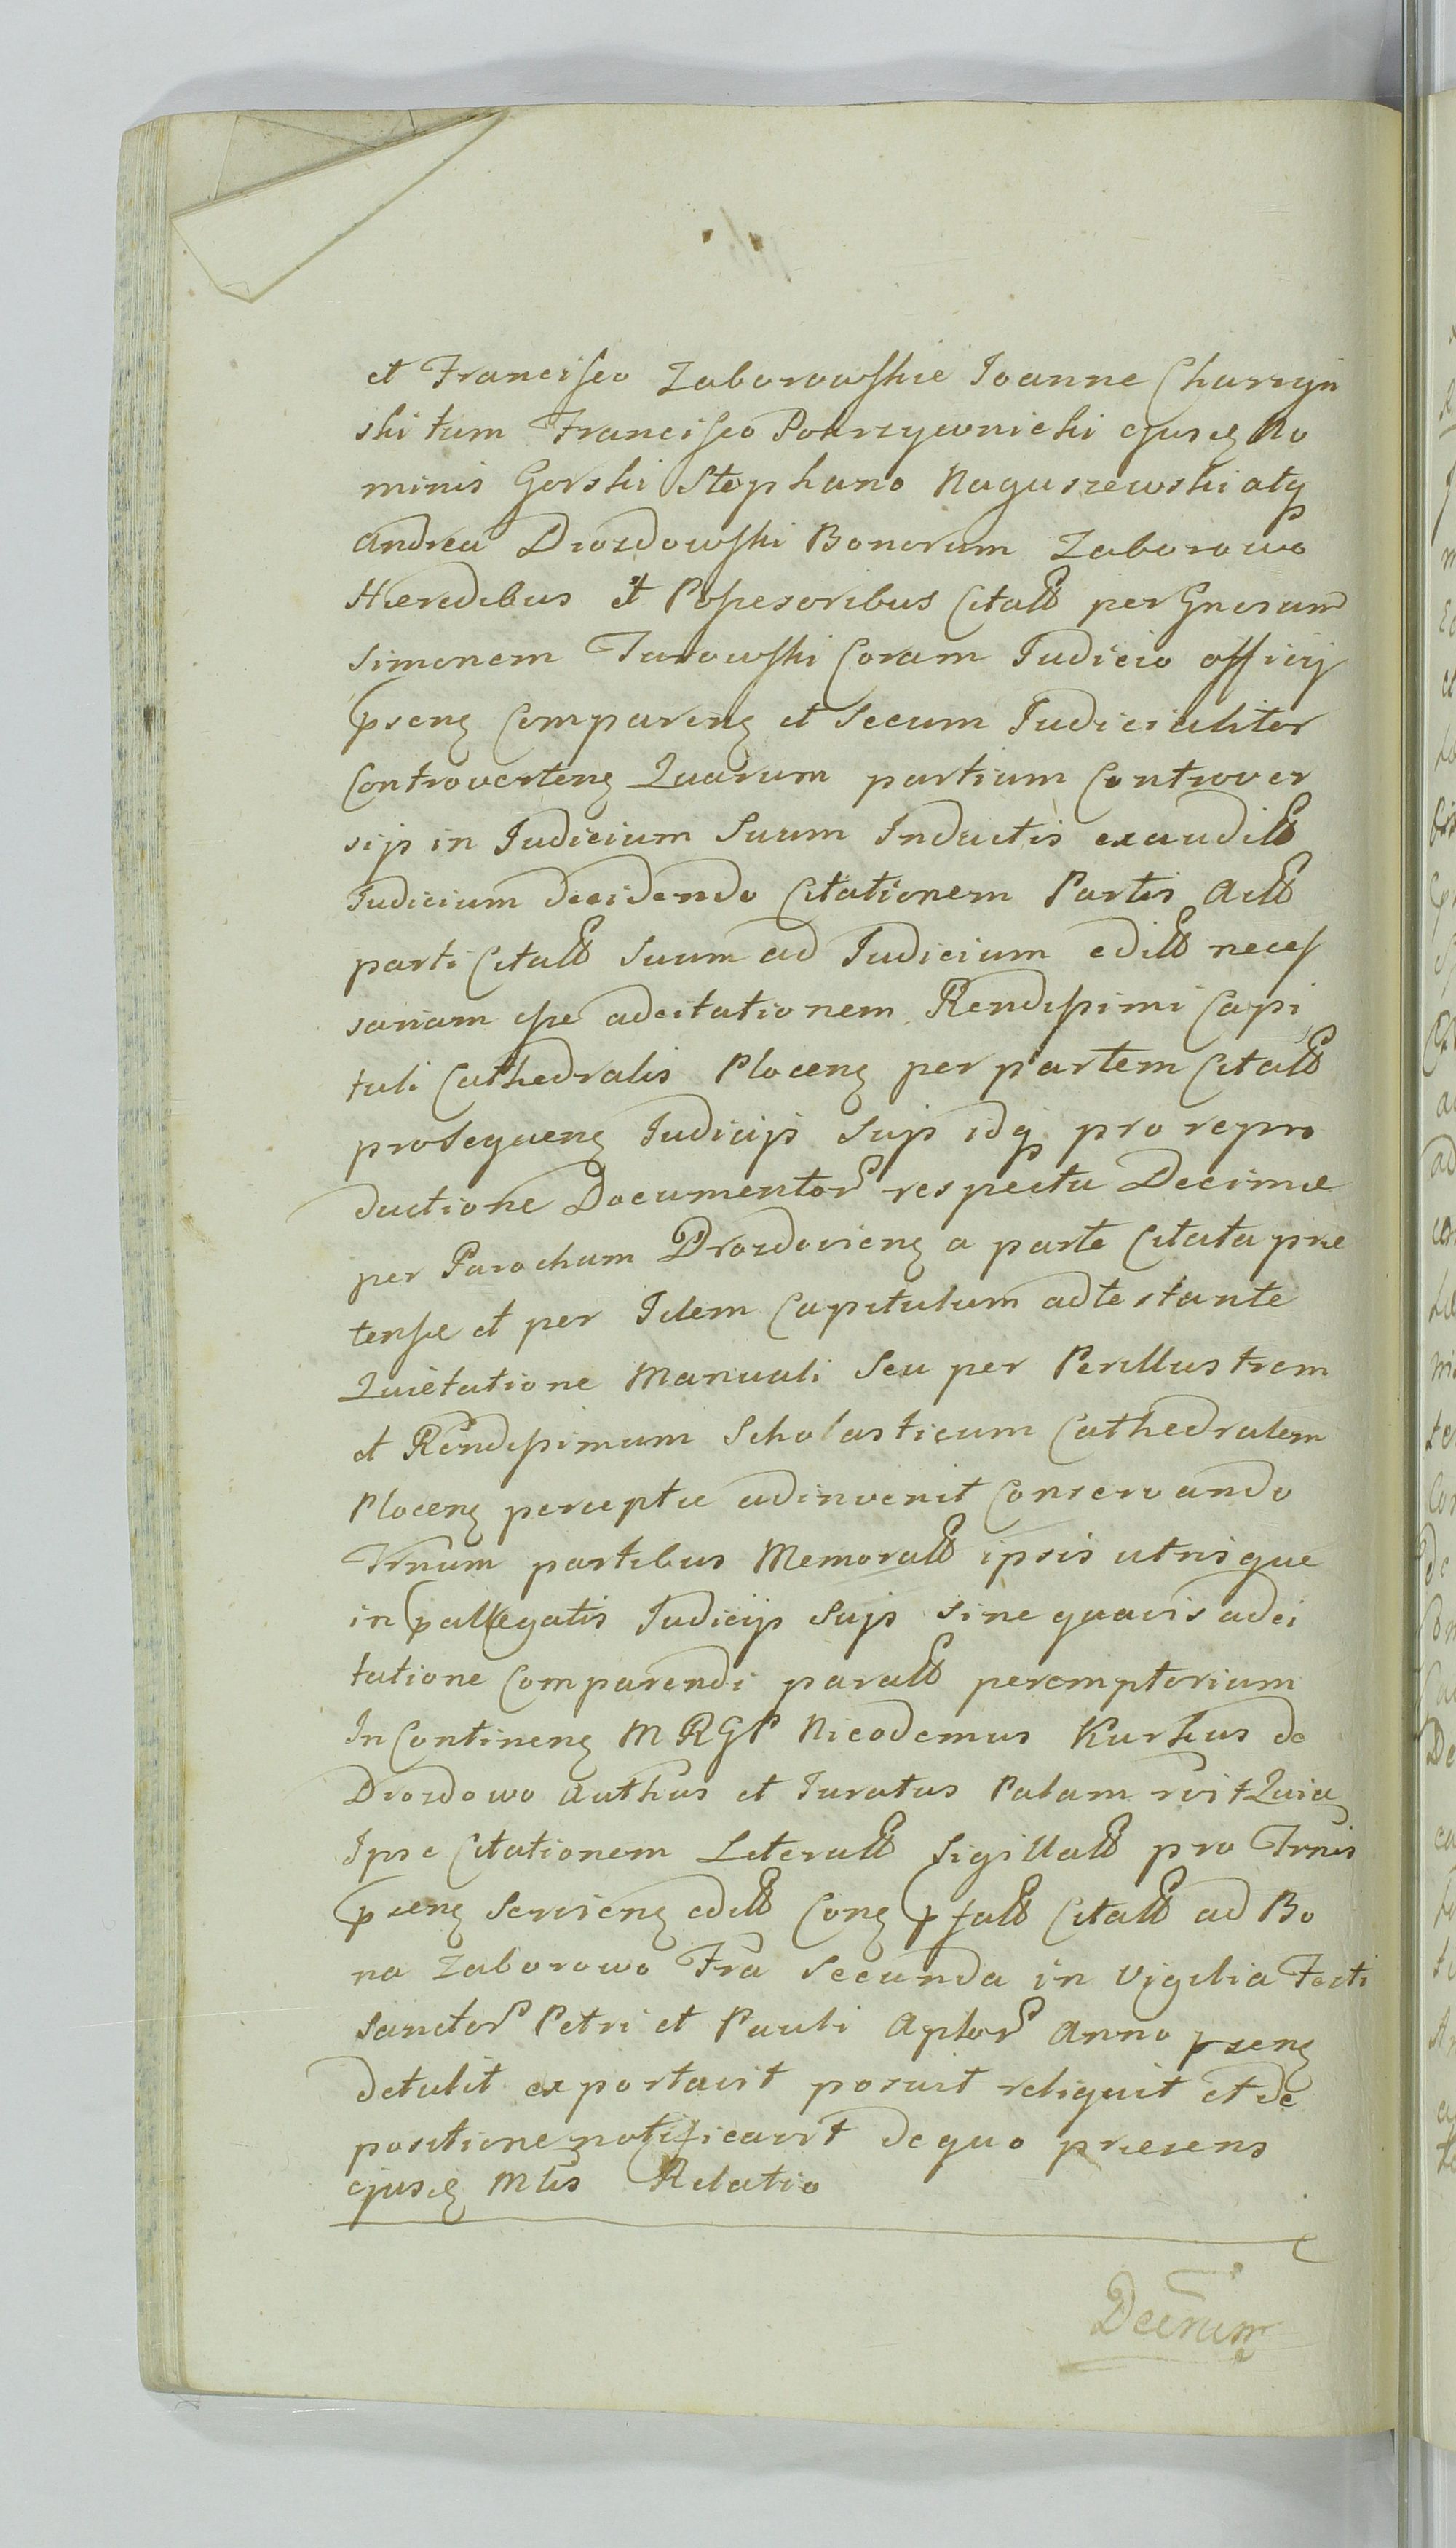 et Francisco Zaborowskie Joanne Charzyn
ski tum Francisco Pokrzywnicki ejusq No
minis Gorski Stephano Naguszewski atq
Andrea Drozdowski Bonorum Zaborowo
Hæredibus et Possesoribus Citatt per Gnosum
Simonem Turowski Coram Judicio officij
pseng Compareng et Secum Judicialiter
Controverteng Quarum partium Controver
sijs in Judicium Suum Inductis exauditt
Judicium Decidendo Citationem Partis Actt
parti Citatt Suum ad Judicium editt necess
sariam esse adcitationem Rendissimi Capi
tuli Cathedralis Ploceng per partem Citatt
prosequeng Judicijs Sujs idq pro repro
ductione Documentor respectu Decimæ
per Parochum Drozdovieng a parte Citata præ
tensæ et per Idem Capitulum adtestante
Quietatione Manuali Seu per Perillustrem
et Rendissimum Scholasticum Cathedralem
Ploceng perceptæ adinvenit Conservando
Trnum partibus Memoratt ipsis utrisque
in pallegatis Judicijs Sujs sine quavis adci
tatione Comparendi paratt peremptorium
In Contineng M R G P Nicodemus Kurkus de
Drozdowo Authus et Juratus Palam rvit Quia
Ipse Citationem Literatt Sigillatt pro Trnis
pseng Servieng editt Cong pfatt Citatt ad Bo
na Zaborowo Fra Secunda in Vigilia Festi
Sanctor Petri et Pauli Aplor Anno pseng
detulit exportavit posuit reliquit et de
positione notificavit de quo præsens
ejusq Mlis Relatio